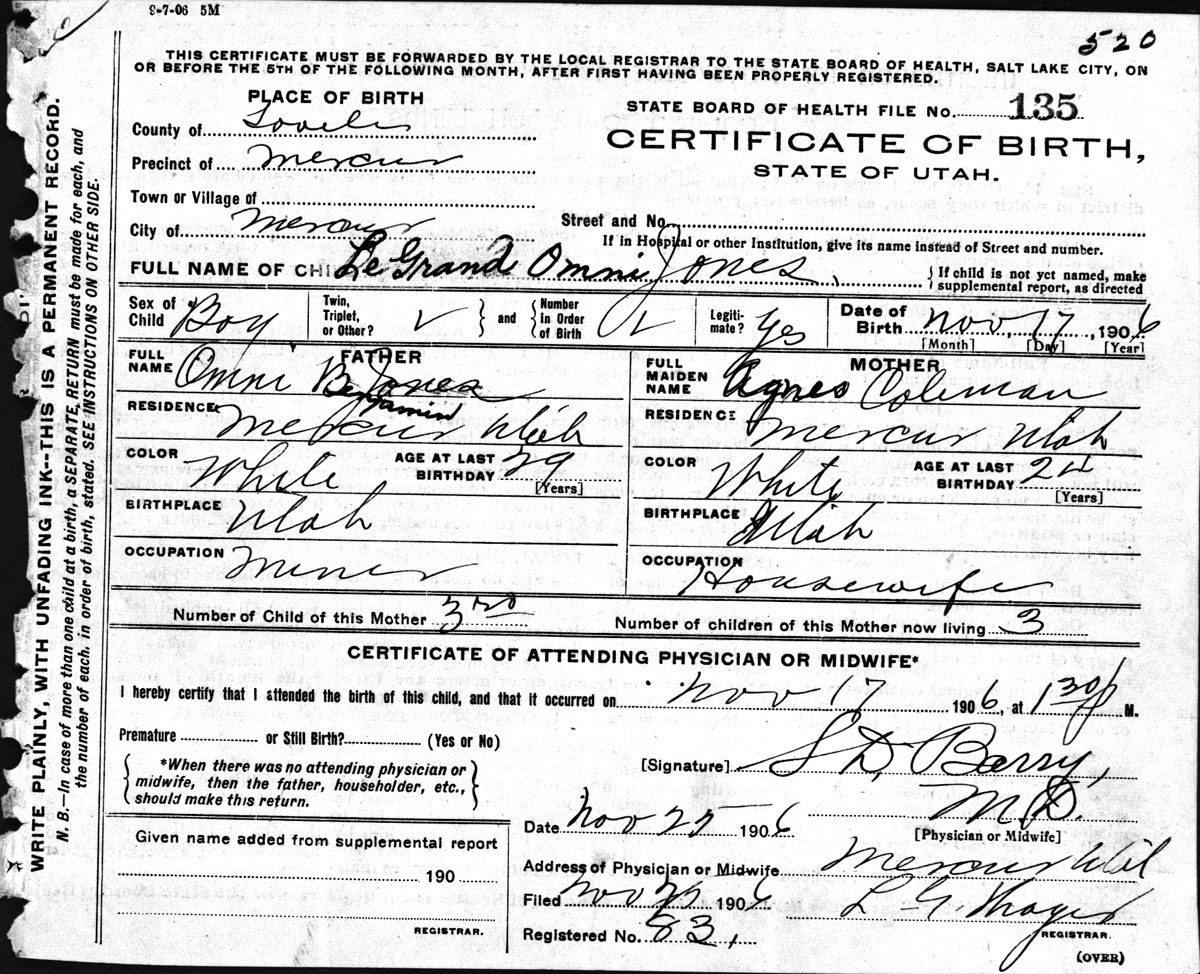 9-7-06 5M
520
THIS CERTIFICATE MUST BE FORWARDED BY THE LOCAL REGISTRAR TO THE STATE BOARD OF HEALTH, SALT LAKE CITY, ON
OR BEFORE THE 5TH OF THE FOLLOWING MONTH, AFTER FIRST HAVING BEEN PROPERLY REGISTERED.
WRITE PLAINLY, WITH UNFADING INK--THIS IS A PERMANENT RECORD.
N. B.—In case of more than one child at a birth, a SEPARATE RETURN must be made for each, and
the number of each, in order of birth, stated. SEE INSTRUCTIONS ON OTHER SIDE.
PLACE OF BIRTH
County of
Precinct of Mercur
Town or Village of
City of Mercur
STATE BOARD OF HEALTH FILE No. 135
CERTIFICATE OF BIRTH,
STATE OF UTAH.
Street and No
If in Hospital or other Institution, give its name instead of Street and number.
FULL NAME OF CHILD Le Grand Omni Jones
If child is not yet named, make
supplemental report, as directed
Sex of Child Boy
Twin, Triplet, or Other?
and
Number In Order of Birth
Legitimate? Yes
Date of Birth Nov, 17, 1906
[Month] [Day] [Year]
FATHER
FULL NAME Omni B Jones
Benjamin
RESIDENCE Mercur Utah
COLOR White AGE AT LAST BIRTHDAY 29
[Years]
BIRTHPLACE Utah
OCCUPATION Miner
MOTHER
FULL MAIDEN NAME Agnes Coleman
RESIDENCE Mercur Utah
COLOR White AGE AT LAST BIRTHDAY 24
[Years]
BIRTHPLACE Utah
OCCUPATION Housewife
Number of Child of this Mother 3rd
Number of children of this Mother now living 3
CERTIFICATE OF ATTENDING PHYSICIAN OR MIDWIFE*
I hereby certify that I attended the birth of this child, and that it occurred on Nov 17 1906, at 1 30 P M.
Premature or Still Birth? (Yes or No)
*When there was no attending physician or
midwife, then the father, householder, etc.,
should make this return.
[Signature] S D, Barry,
M.D.
[Physician or Midwife]
Date Nov 25 1906
Address of Physician or Midwife Mercur
Filed Nov 1906
REGISTRAR.
Registered No. 83,
(OVER)
Given name added from supplemental report
190
REGISTRAR.